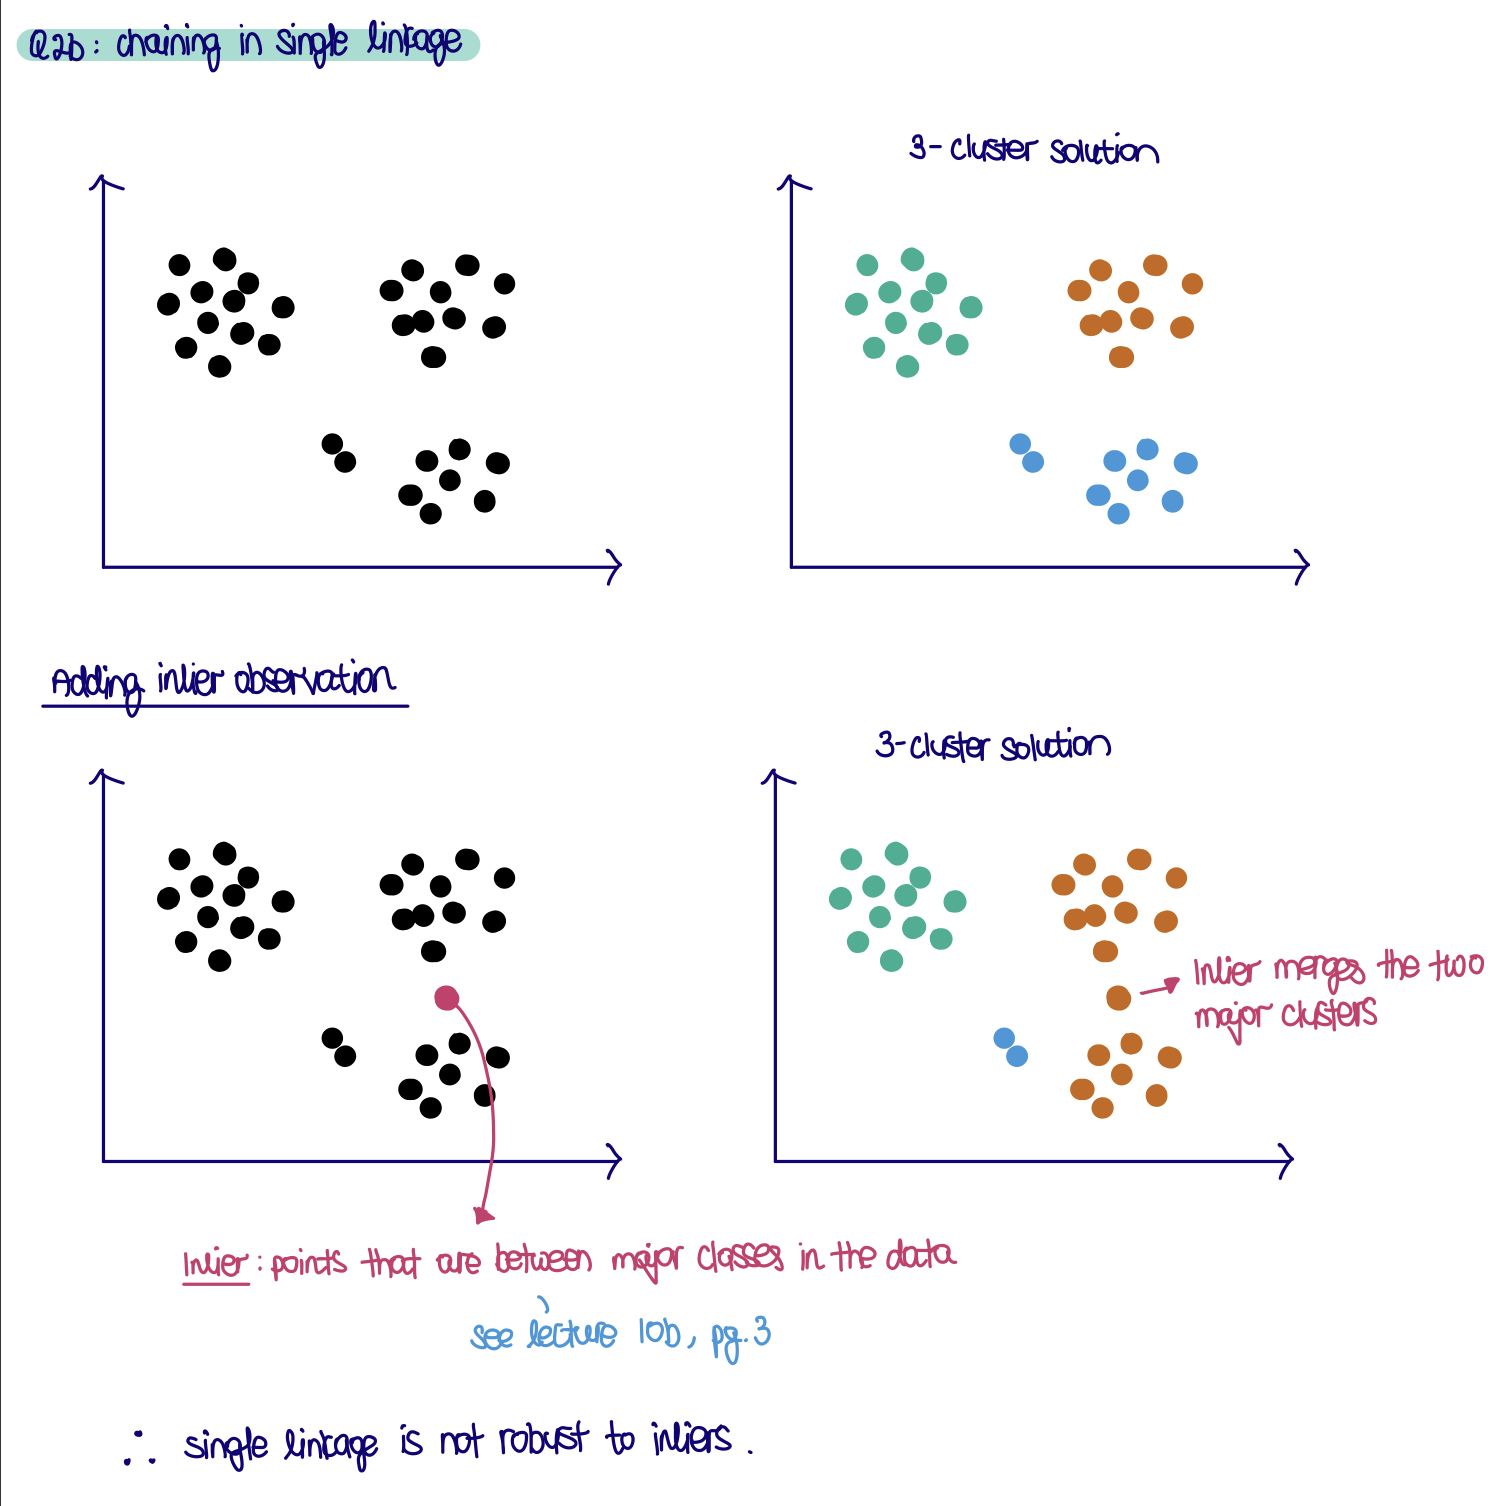 Q2b: chaining in single linkage
3-cluster solution
Adding inlier observation
3-cluster solution
Inlier merges the two
major clusters
Inlier: points that are between major classes in the data
see lecture 10b, pg. 3
∴ single linkage is not robust to inliers.